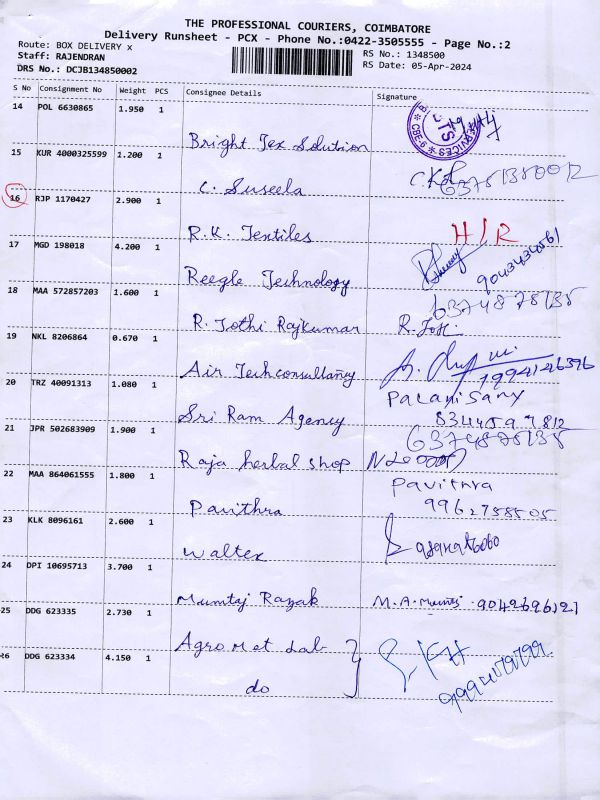 THE PROFESSIONAL COURIERS, COIMBATORE
Delivery Runsheet - PCX - Phone No.:0422-3505555 - Page No.:2
Route: BOX DELIVERY x
RS No.: 1348500
Staff: RAJENDRAN
RS Date: 05-Apr-2024
DRS No.: DCJB134850002
S No Consignment No Weight PCS Consignee Details Signature
14 POL 6630865 1.950 1 Bright Tex Solution
SERVICES CBE-9
15 KUR 4000325599 1.200 1 C. Suseela
16 RJP 1170427 2.900 1 R.K. Textiles H/R
17 MGD 198018 4.200 1 Reegle Technology 9043434561
18 MAA 572857203 1.600 1 R. Jothi Rajkumar R. Joti 6374878135
19 NKL 8206864 0.670 1 Air Techconsultancy 1994146396
20 TRZ 40091313 1.080 1 Sri Ram Agency Palanisamy
21 JPR 502683909 1.900 1 Raja herbal shop 6374878135
22 MAA 864061555 1.800 1 Pavithra Pavithra
9962758505
23 KLK 8096161 2.600 1 Waltex
24 DPI 10695713 3.700 1 Mumtaj Razak M.A. 9042696121
25 DDG 623335 2.730 1 Agro Met Lab
26 DDG 623334 4.150 1 do